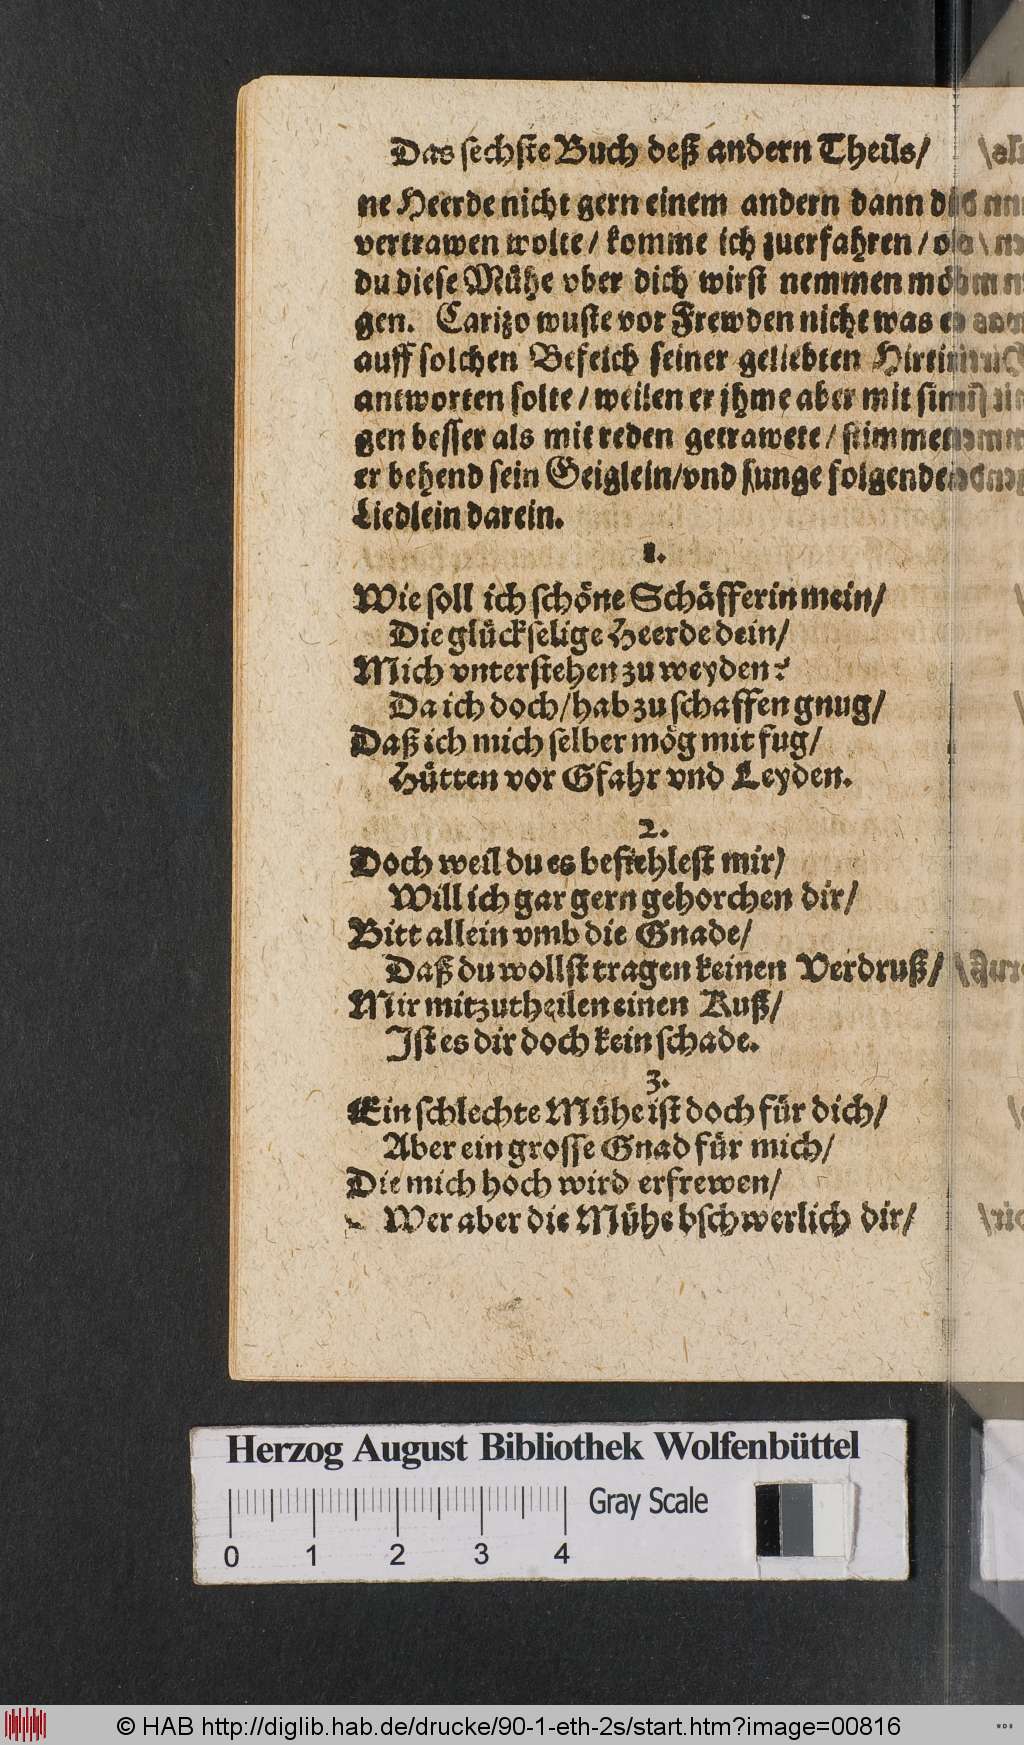 Das sechste Buch deß andern Theils/
ne Heerde nicht gern einem andern dann dir
vertrawen wolte/ komme ich zuerfahren/ ob
du diese Mühe vber dich wirst nemmen mö-
gen. Carizo wuste vor Frewden nicht was er
auff solchen Befelch seiner geliebten Hirtin
antworten solte/ weilen er jhme aber mit sin-
gen besser als mit reden getrawete/ stimmet
er behend sein Geiglein/vnd sunge folgendes
Liedlein darein.
1.
Wie soll ich schöne Schäfferin mein/
Die glückselige Heerde dein/
Mich vnterstehen zu weyden?
Da ich doch/hab zu schaffen gnug/
Daß ich mich selber mög mit fug/
Hütten vor Gfahr vnd Leyden.
2.
Doch weil du es befiehlest mir/
Will ich gar gern gehorchen dir/
Bitt allein vmb die Gnade/
Daß du wollst tragen keinen Verdruß/
Mir mitzutheilen einen Kuß/
Ist es dir doch kein schade.
3.
Ein schlechte Mühe ist doch für dich/
Aber ein grosse Gnad für mich/
Die mich hoch wird erfrewen/
Wer aber die Mühe bschwerlich dir/
Herzog August Bibliothek Wolfenbüttel
Gray Scale
0 1 2 3 4
© HAB http://diglib.hab.de/drucke/90-1-eth-2s/start.htm?image=00816